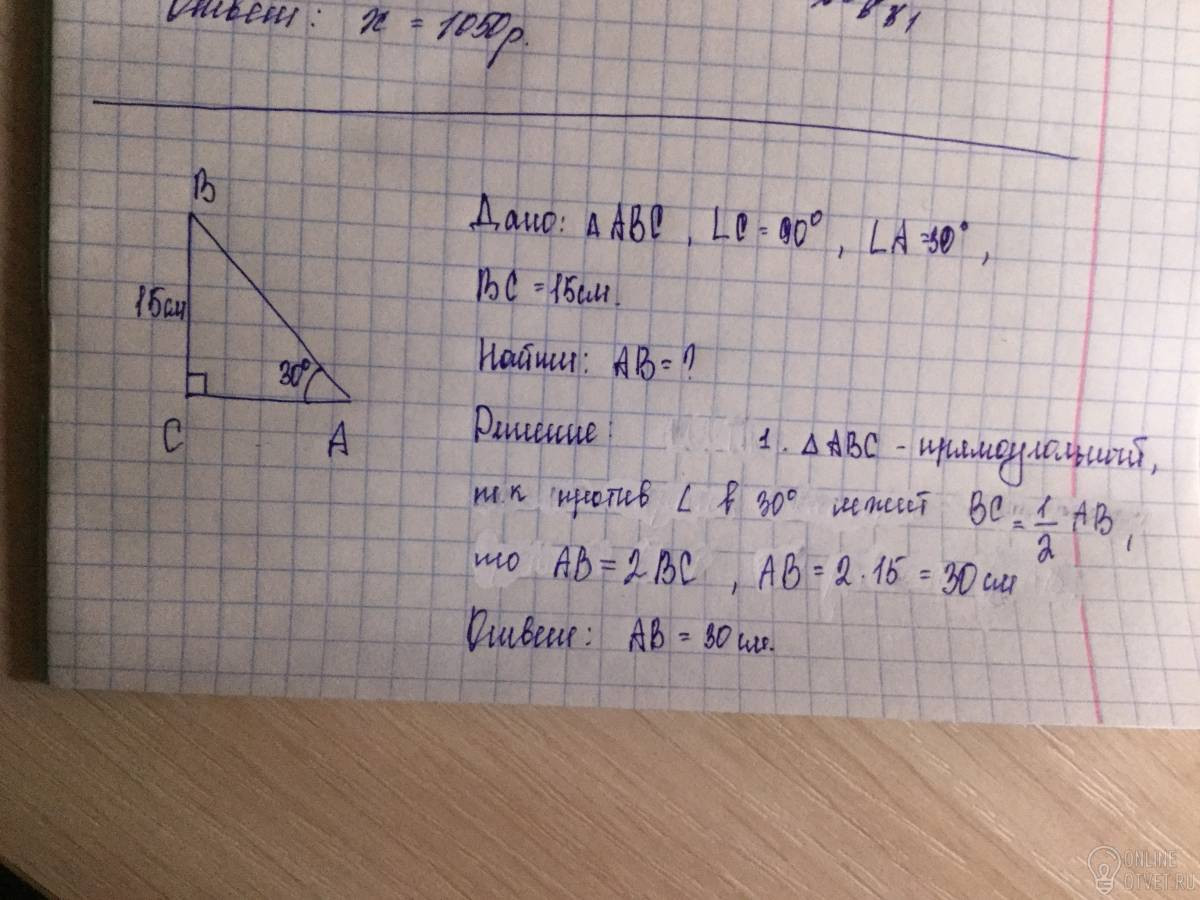 Ответ: х = 1050р.
B
15см
30°
C
A
Дано: Δ ABC, ∠C = 90°, ∠A = 30°,
BC = 15см.
Найти: AB = ?
Решение: 1. Δ ABC - прямоугольный,
т.к против ∠ в 30° лежит BC = 1/2 AB,
то AB = 2 BC, AB = 2 · 15 = 30 см
Ответ: AB = 30 см.
ONLINE
OTVET.RU